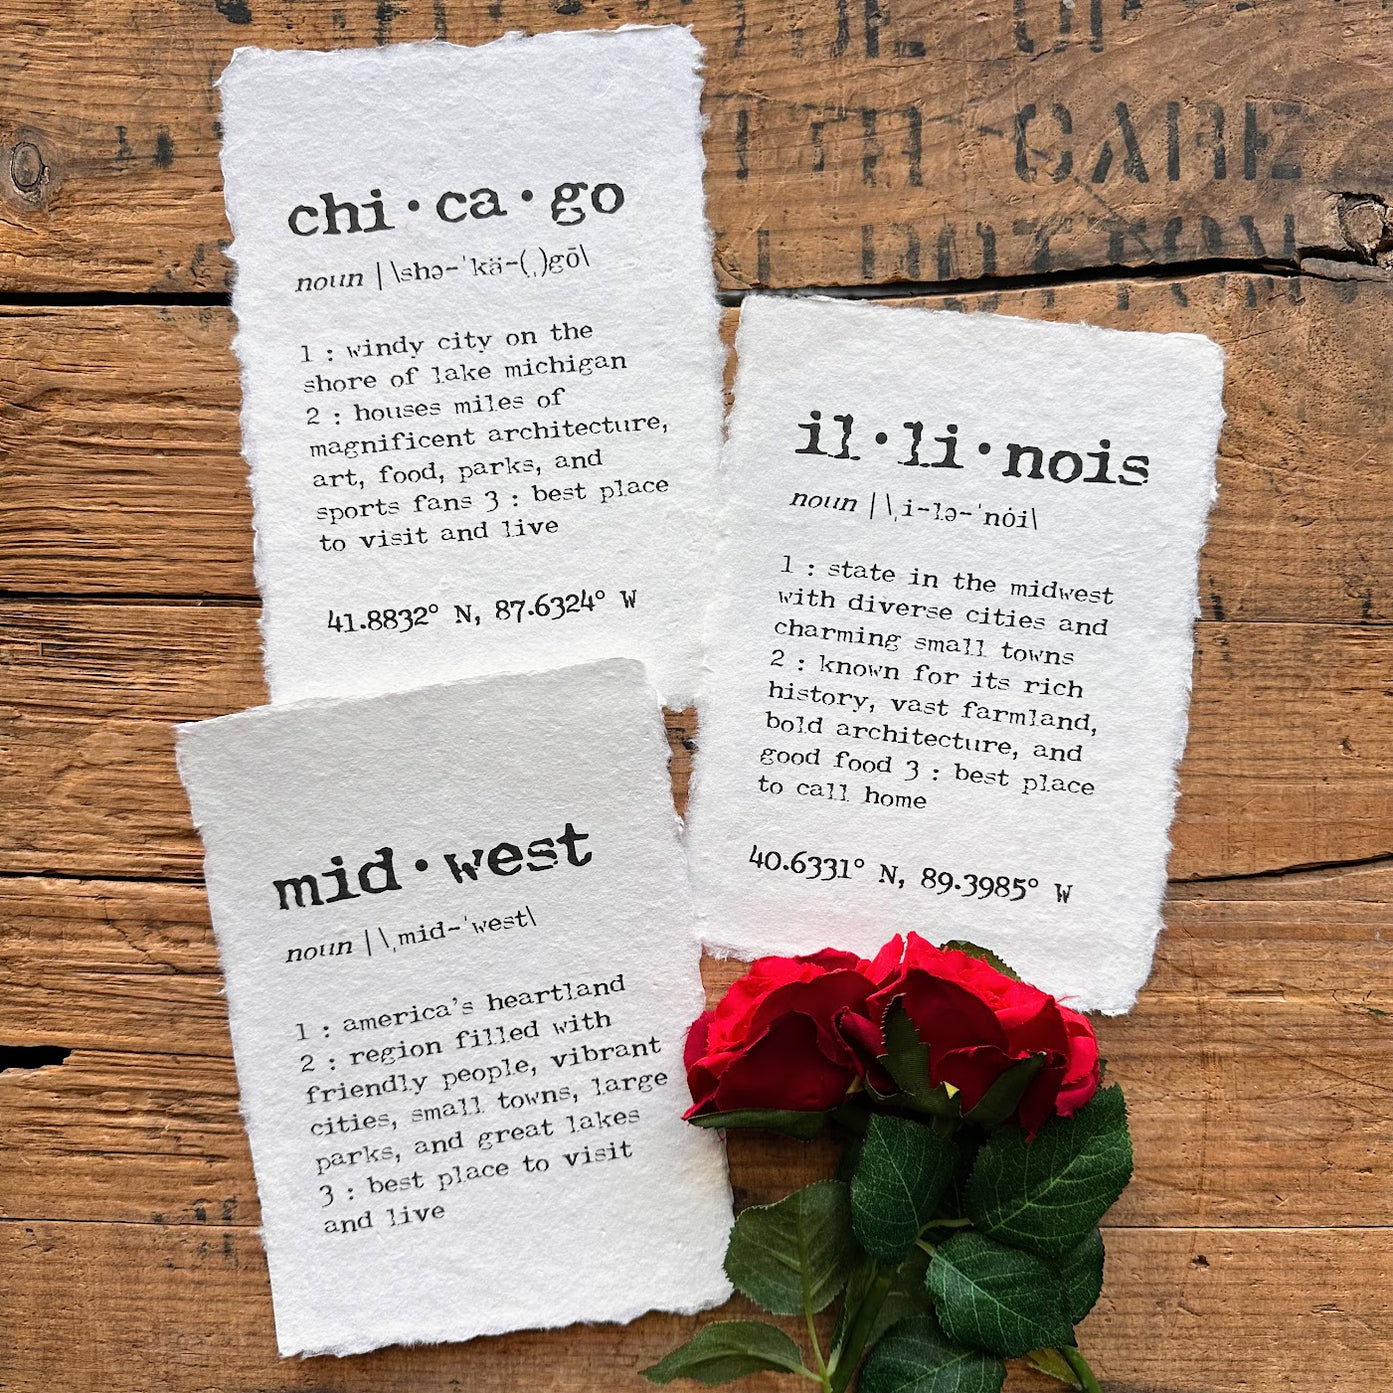 WITH CARE
chi·ca·go
noun | \shə-ˈkä-(ˌ)gō\
1 : windy city on the
shore of lake michigan
2 : houses miles of
magnificent architecture,
art, food, parks, and
sports fans 3 : best place
to visit and live
41.8832° N, 87.6324° W
il·li·nois
noun | \ˌi-lə-ˈnȯi\
1 : state in the midwest
with diverse cities and
charming small towns
2 : known for its rich
history, vast farmland,
bold architecture, and
good food 3 : best place
to call home
40.6331° N, 89.3985° W
mid·west
noun | \ˌmid-ˈwest\
1 : america's heartland
2 : region filled with
friendly people, vibrant
cities, small towns, large
parks, and great lakes
3 : best place to visit
and live